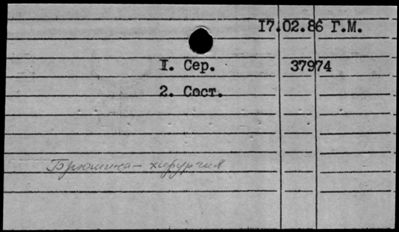 17.02.86 Г.М.
I. Сер. 37974
2. Сост.
Брюшина – хирургия